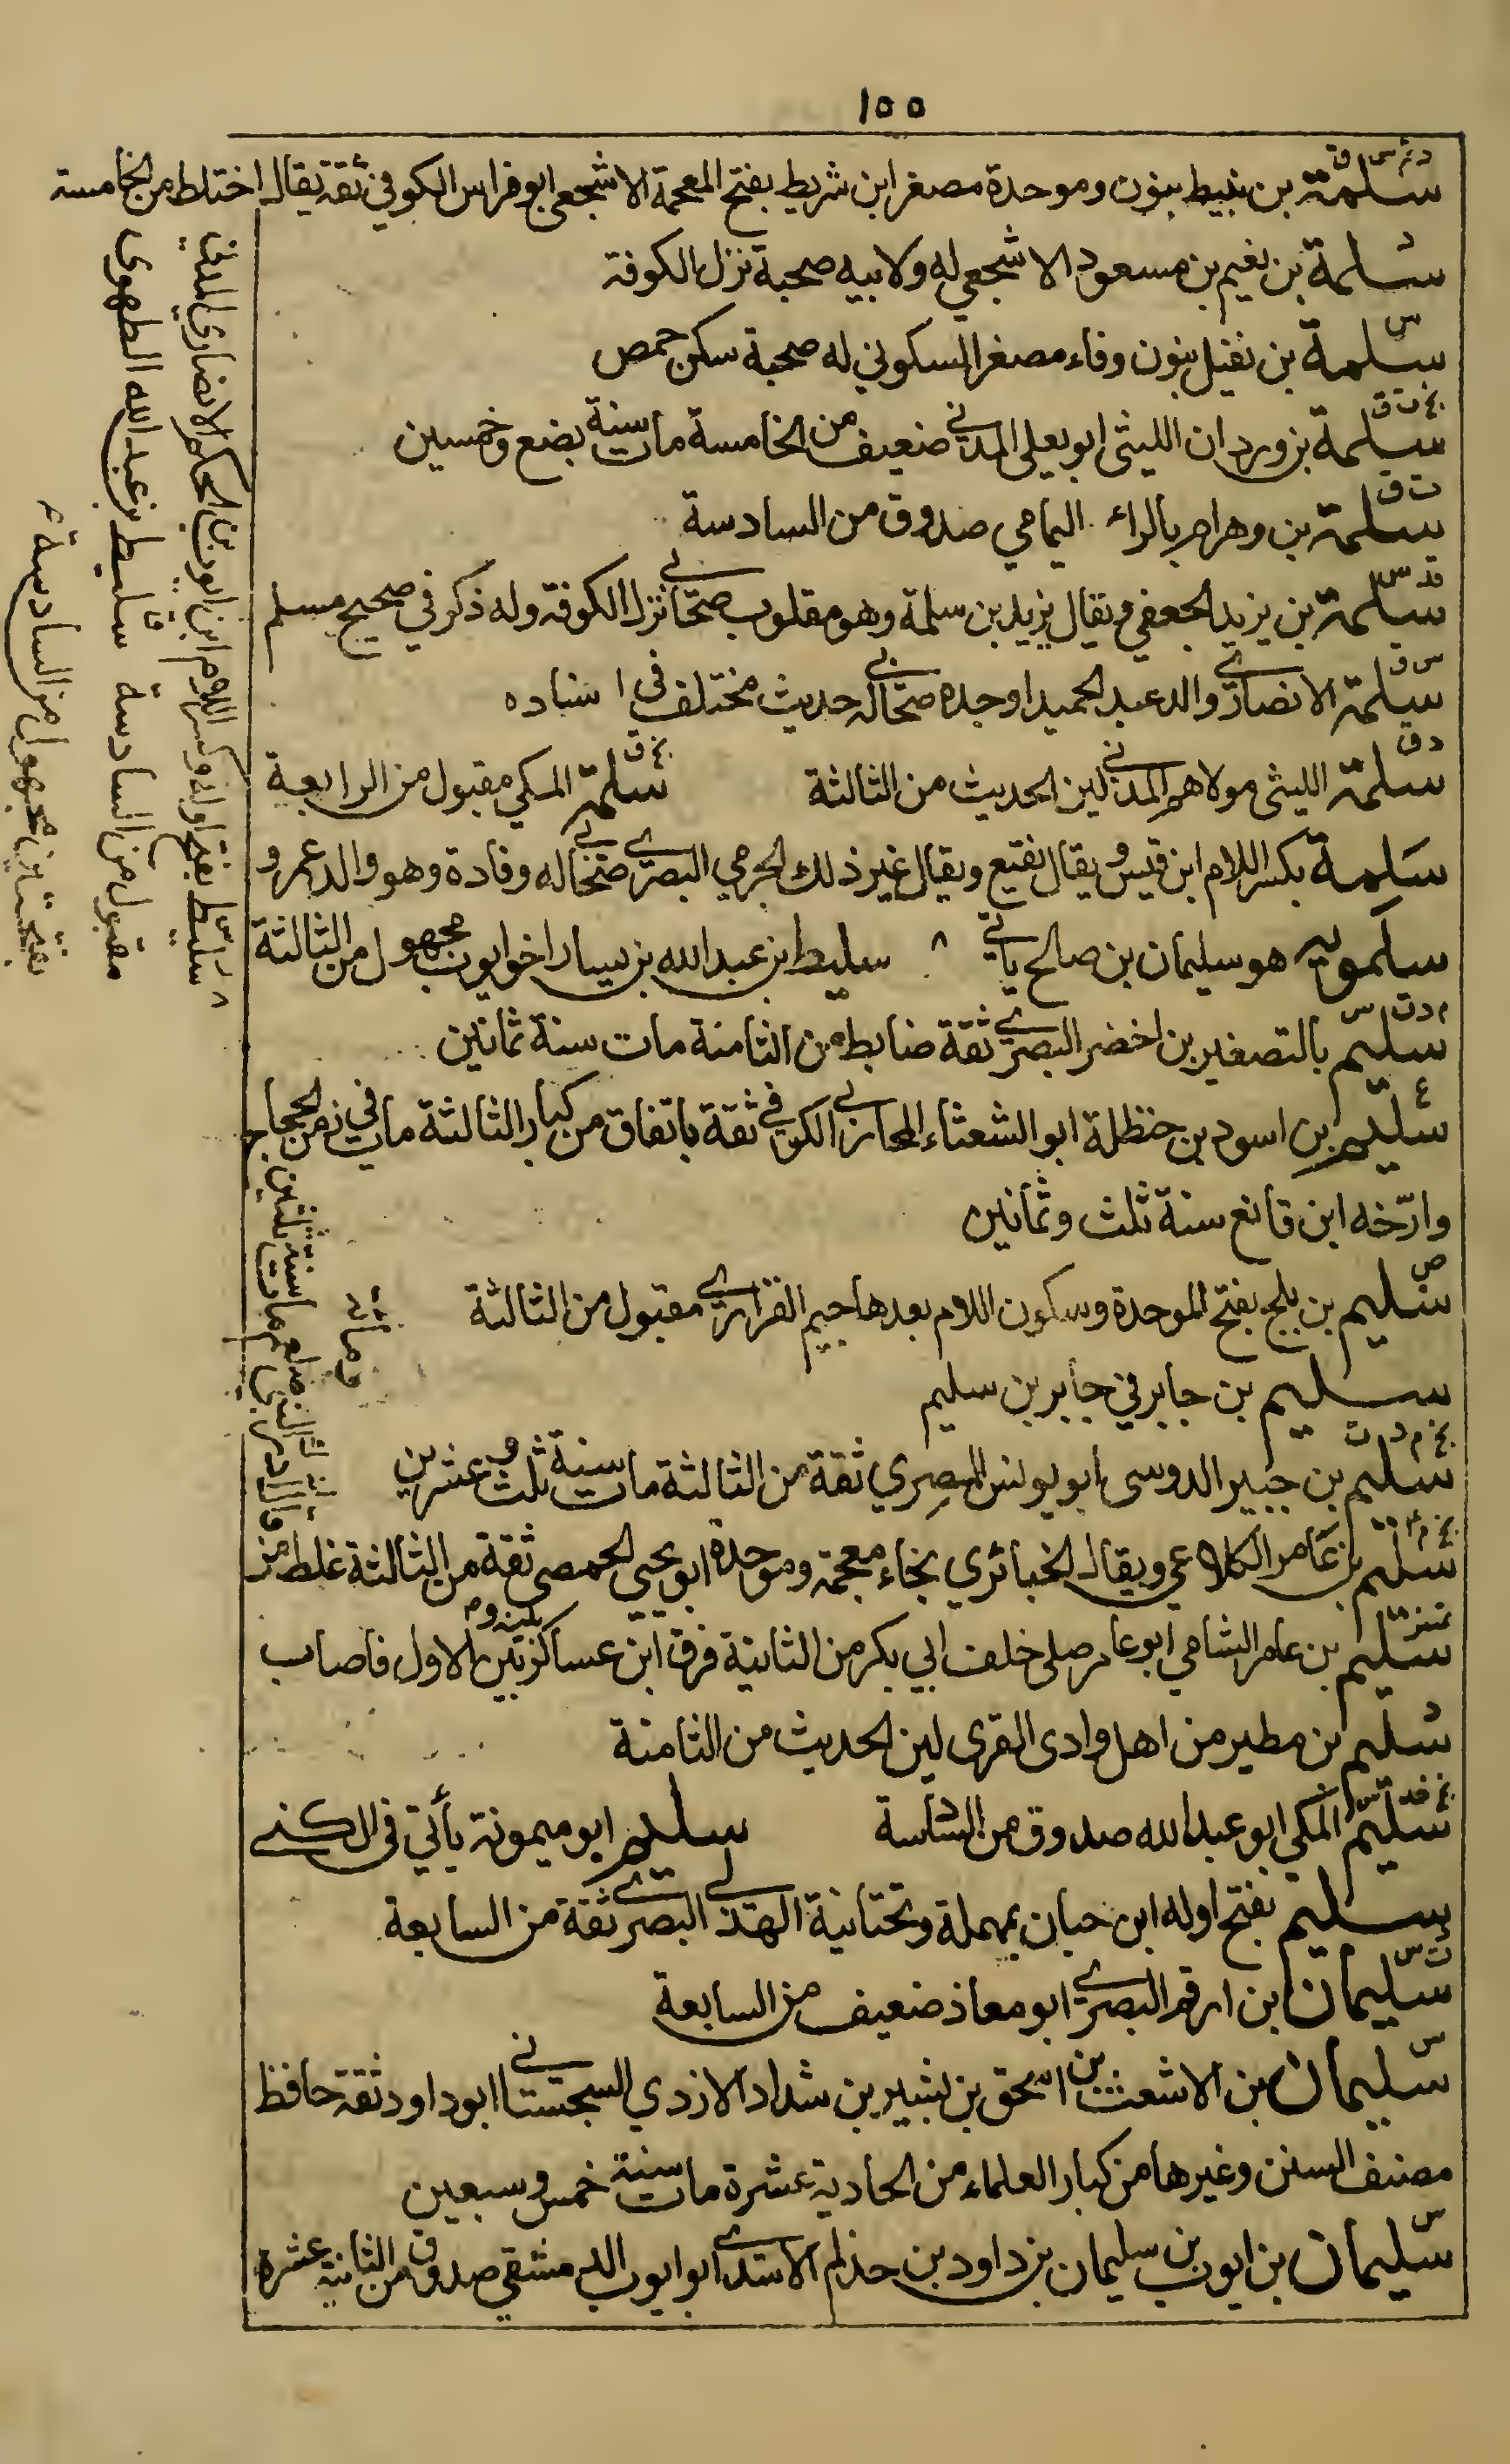 ١٥٥
سلمة بن نبيط بنون وموحدة مصغر ابن شريط بفتح المعجمة الاشجعي ابو فراس الكوفي ثقة يقال اختلط من الخامسة
د
سلمة بن نعيم بن مسعود الاشجعي له ولابيه صحبة نزل الكوفة
س
سلمة بن نفيل بنون وفاء مصغر السكوني له صحبة سكن حمص
بخ ت ق
سلمة بن وردان الليثي ابو يعلى المدني ضعيف من الخامسة مات سنة بضع وخمسين
ت ق
سلمة بن وهرام بالراء اليمامي صدوق من السادسة
قد س
سلمة بن يزيد الجعفي ويقال يزيد بن سلمة وهو مقلوب صحابي نزل الكوفة وله ذكر في صحيح مسلم
س ق
سلمة الانصاري والد عبد الحميد او جده صحابي له حديث مختلف في اسناده
د ق
سلمة الليثي مولاهم المدني لين الحديث من الثالثة
بخ ق
سلمة المكي مقبول من الرابعة
سلمة بكسر اللام ابن قيس ويقال نفيع ويقال غير ذلك الجرمي البصري صحابي له وفادة وهو والد عمرو
سلمويه هو سليمان بن صالح ياتي ٨ سليط بن عبد الله بن يسار اخو ايوب مجهول من الثالثة
م د ت س
سليم بالتصغير بن اخضر البصري ثقة ضابط من الثامنة مات سنة ثمانين
ع
سليم بن اسود بن حنظلة ابو الشعثاء المحاربي الكوفي ثقة باتفاق من كبار الثالثة مات في زمن الحجاج
وارّخه ابن قانع سنة ثلث وثمانين
ص
سليم بن بلج بفتح الموحدة وسكون اللام بعدها جيم الفزاري مقبول من الثالثة
سليم بن جابر في جابر بن سليم
بخ م د ت
سليم بن جبير الدوسي ابو يونس المصري ثقة من الثالثة مات سنة ثلث وعشرين
بخ م ٤
سليم بن عامر الكلاعي ويقال الخبائري بخاء معجمة وموحدة ابو يحيى الحمصي ثقة من الثالثة غلط من
تمييز
سليم بن عامر الشامي ابو عامر صلى خلف ابي بكر من الثانية فرق ابن عساكر بينه وبين الاول فاصاب
د
سليم بن مطير من اهل وادى القرى لين الحديث من الثامنة
سليم المكي ابو عبد الله صدوق من السادسة
سليم ابو ميمونة يأتي في الكنى
سليم بفتح اوله ابن حيان بمهملة وتحتانية الهذلي البصري ثقة من السابعة
سليمان ابن ارقم البصري ابو معاذ ضعيف من السابعة
سليمان بن الاشعث بن اسحق بن بشير بن شداد الازدي السجستاني ابو داود ثقة حافظ
مصنف السنن وغيرها من كبار العلماء من الحادية عشرة مات سنة خمس وسبعين
س
سليمان بن ايوب بن سليمان بن داود بن حذلم الاسدي ابو ايوب الدمشقي صدوق من الثانية عشرة
٨ سليط بفتح اوله وكسر اللام ابن ايوب بن الحكم الانصاري المدني
مقبول من السادسة سليط بن عبد الله الطهوي
بفتحتين مجهول من السادسة